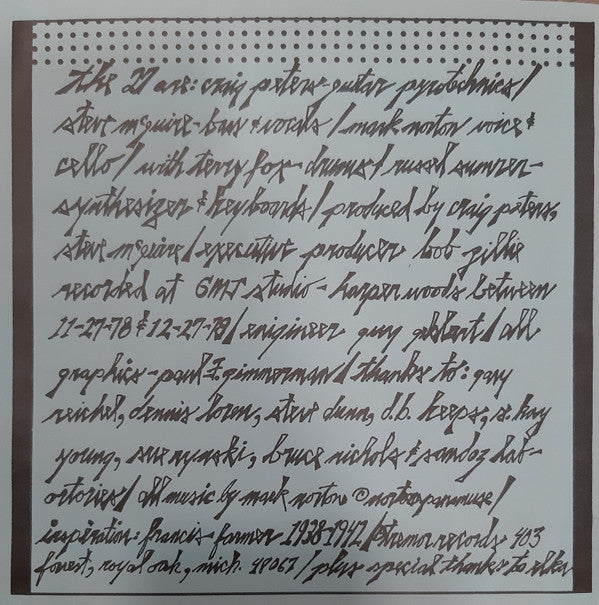 the 27 are: craig peters-guitar pyrotechnics/
steve mcguire-bass & vocals / mark norton voice &
cello / with terry fox-drums / russel sumner-
synthesizer & keyboards / produced by craig peters,
steve mcguire / executive producer bob
recorded at GMS studio - harper woods between
11-27-78 & 12-27-78 / enigineer guy / all
graphics - paul F. zimmerman / thanks to: gary
reichel, dennis loren, steve dunn, d.b. keeps, s. kay
young, sue rynski, bruce nichols & sandoz lab-
ortories / all music by mark norton ©
inspiration: francis farmer 1938-1942 / tremor records 403
forest, royal oak, mich. 48067 / plus special thanks to